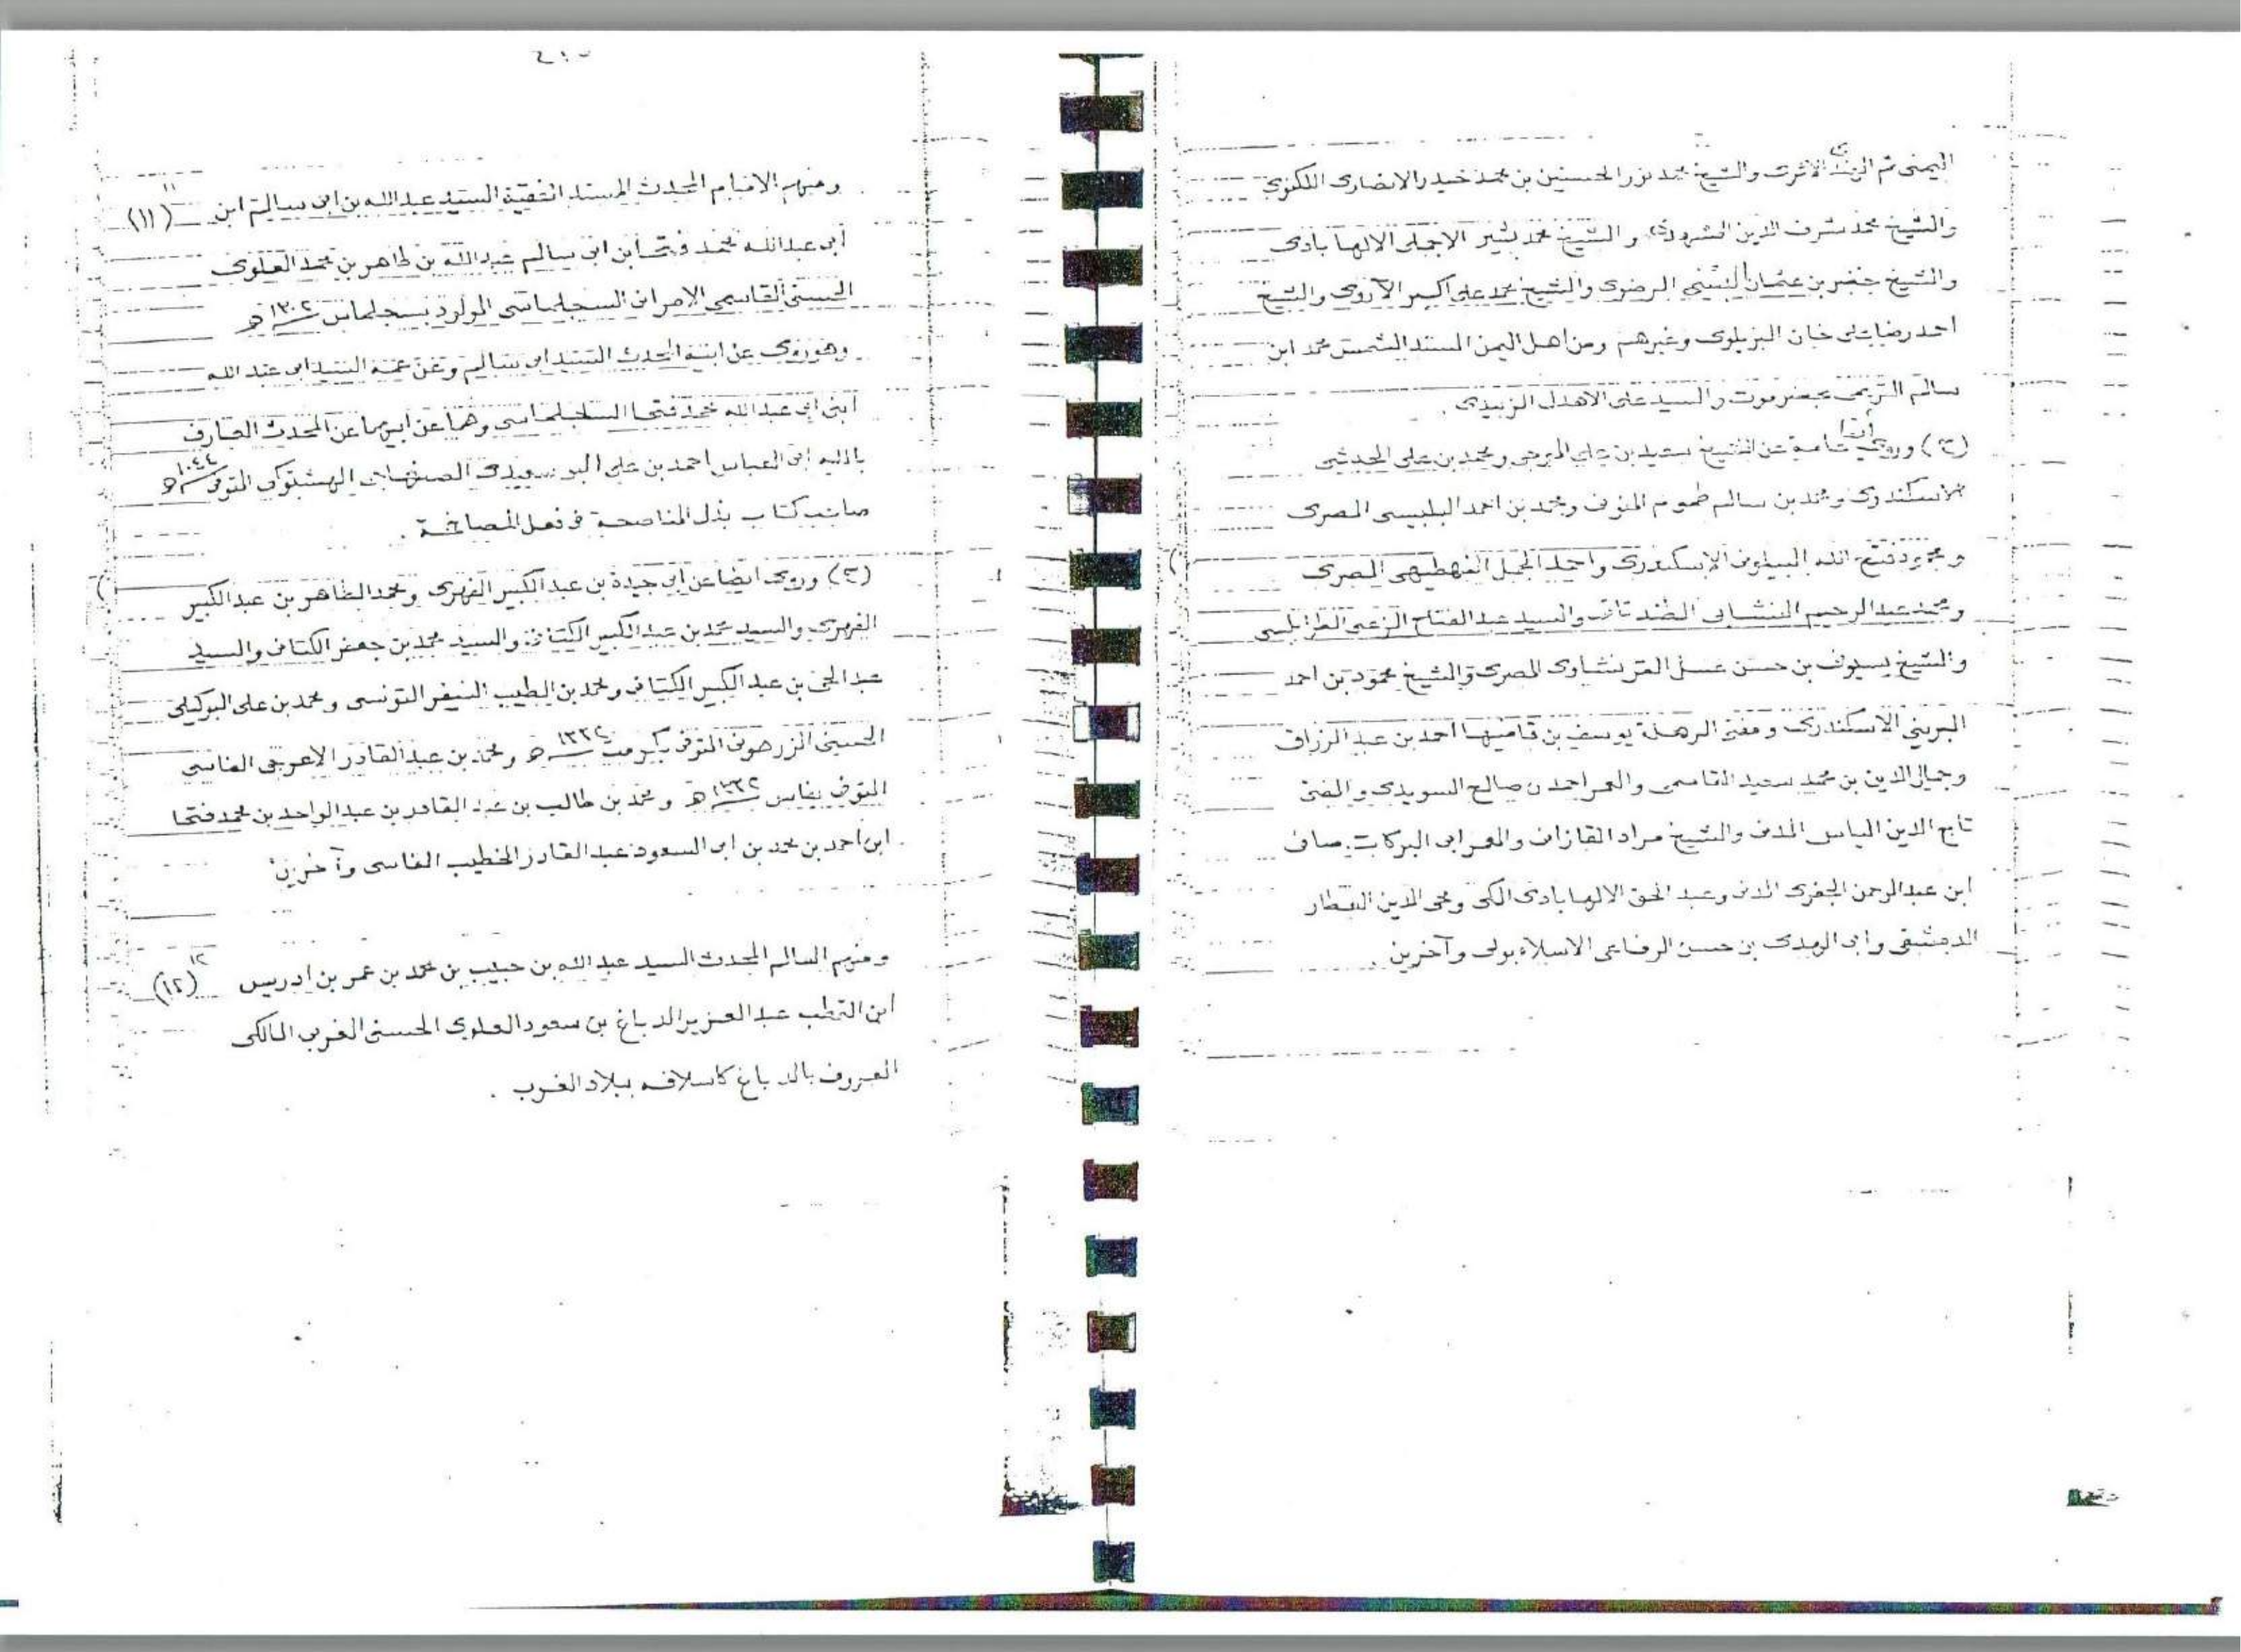 اليمنى ثم الهندى الاثرى والشيخ محمد نور الحسنين بن محمد حيدر الانصارى اللكنوى
والشيخ محمد شرف الدين و الشيخ محمد بشير الاجملى الالهابادى
والشيخ خضر بن عثمان الرضوى والشيخ محمد على اكبر الآروى والشيخ
احمد رضا على خان البريلوى وغيرهم ومن اهل اليمن المسند الشمس محمد ابن
سالم التريمى بحضرموت والسيد على الاهدل الزبيدى .
(ح) وروى أيضا عن الشيخ سعيد بن على الموجى ومحمد بن على
الاسكندرى ومحمد بن سالم طموم المنوفى ومحمد بن احمد البلبيسى المصرى
و فتح الله الاسكندرى واحمد الجمل النهطيهى المصرى
ومحمد عبد الرحيم النشابى الطندتائى والسيد عبد الفتاح الزعبى الطرابلسى
والشيخ بسيونى بن حسن عسل القرنشاوى المصرى والشيخ محمود بن احمد
الاسكندرى و بن احمد بن عبد الرزاق
وجمال الدين بن محمد سعيد القاسمى والمعمر احمد بن صالح السويدى والمفتى
تاج الدين الياس المدنى والشيخ مراد القازانى والمعمر ابى البركات صافى
ابن عبد الرحمن الجفرى المدنى وعبد الحق الالهابادى المكى ومحى الدين العطار
الدمشقى وابى الهدى بن حسن الرفاعى الاسلامبولى وآخرين .
ومنهم الامام المحدث المسند الفقيه السيد عبد الله بن ابى سالم ابن (١١)
أبى عبد الله محمد فتحا بن ابى سالم عبد الله بن طاهر بن محمد العلوى
الحسنى القاسمى السجلماسى المولود بسجلماس ١٣٠٢ هـ
وهو روى عن ابيه المحدث السيد ابى سالم وعن عمه السيد ابى عبد الله
ابنى ابى عبد الله محمد فتحا السجلماسى وهما عن ابيهما عن المحدث العارف
بالله ابى العباس احمد بن على البوسعيدى الهشتوكى المتوفى ١٠٤٤ هـ
صاحب كتاب بذل المناصحة فى فعل المصافحة .
(ح) وروى ايضا عن ابى جيدة بن عبد الكبير الفهرى ومحمد الطاهر بن عبد الكبير
الفهرى والسيد محمد بن عبد الكبير الكتانى والسيد محمد بن جعفر الكتانى والسيد
عبد الحى بن عبد الكبير الكتانى ومحمد بن الطيب النيفر التونسى ومحمد بن على البوكيلى
الحسينى الزرهونى المتوفى هـ ومحمد بن عبد القادر الاعرجى الفاسى
المتوفى بفاس هـ ومحمد بن طالب بن عبد القادر بن عبد الواحد بن محمد فتحا
ابن احمد بن محمد بن ابى السعود عبد القادر الخطيب الفاسى وآخرين
ومنهم العالم المحدث السيد عبد الله بن حبيب بن محمد بن عمر بن ادريس (١٢)
ابن القطب عبد العزيز الدباغ بن سعود العلوى الحسنى المغربى المالكى
المعروف بالدباغ كاسلافه ببلاد المغرب .